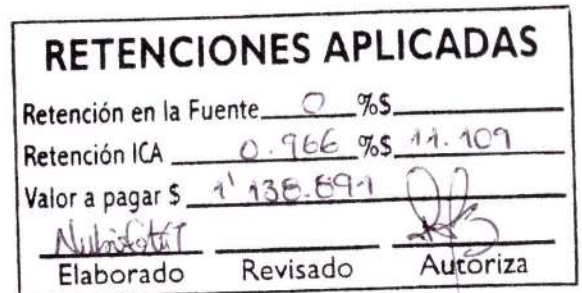 RETENCIONES APLICADAS
Retención en la Fuente 0 %$
Retención ICA 0.966 %$ 11.109
Valor a pagar $ 1'138.891
Elaborado Revisado Autoriza